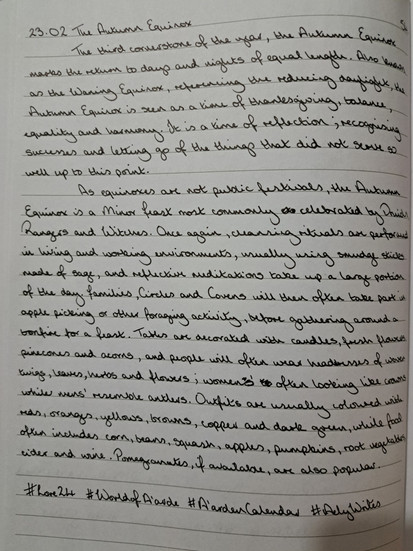 23.02 The Autumn Equinox
The third cornerstone of the year, the Autumn Equinox
marks the return to days and nights of equal length. Also known
as the Waning Equinox, referencing the reducing daylight, the
Autumn Equinox is seen as a time of thanksgiving, balance,
equality and harmony. It is a time of reflection; recognising
successes and letting go of the things that did not serve so
well up to this point.
As equinoxes are not public festivals, the Autumn
Equinox is a Minor feast most commonly celebrated by Druids,
Rangers and Witches. Once again, cleansing rituals are performed
in living and working environments, usually using smudge sticks
made of sage, and reflective meditations take up a large portion
of the day. Families, Circles and Covens will then often take part in
apple picking or other foraging activity, before gathering around a
bonfire for a feast. Tables are decorated with candles, fresh flowers
pinecones and acorns, and people will often wear headdresses of woven
twigs, leaves, herbs and flowers; womens' often looking like crowns
while mens' resemble antlers. Outfits are usually coloured with
reds, oranges, yellows, browns, copper and dark green, while food
often includes corn, beans, squash, apples, pumpkins, root vegetables
cider and wine. Pomegranates, if available, are also popular.
#Lore24 #WorldofAiarde #AiardenCalendar #AelyWrites